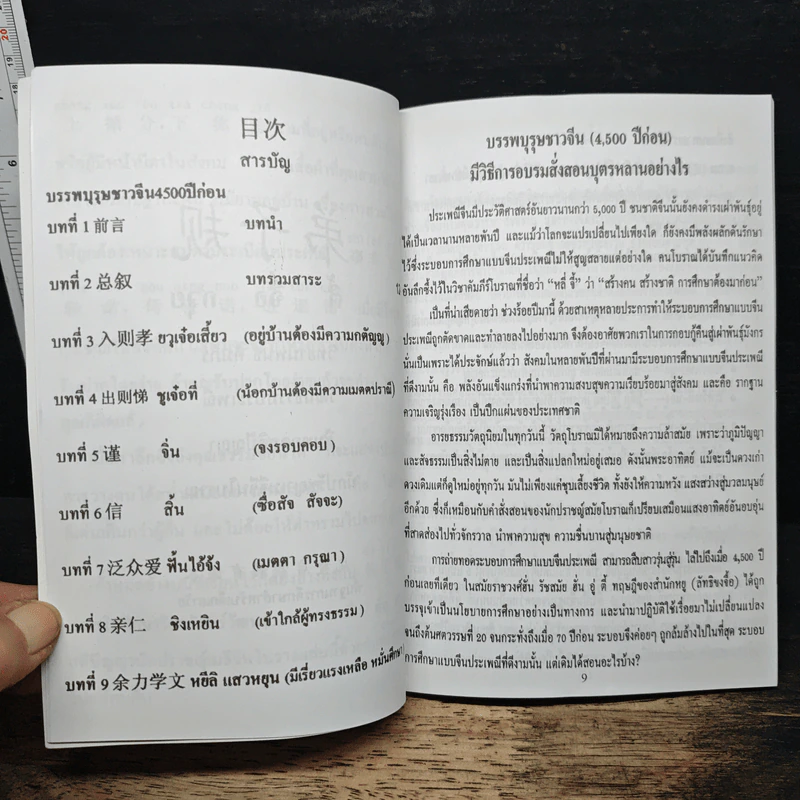 目次
สารบัญ
บรรพบุรุษชาวจีน4500ปีก่อน
บทที่ 1 前言 บทนำ
บทที่ 2 总叙 บทรวมสาระ
บทที่ 3 入则孝 ยวุเจ๋อเสี้ยว (อยู่บ้านต้องมีความกตัญญู)
บทที่ 4 出则悌 ชูเจ๋อที่ (น้อกบ้านต้องมีความเมตตปรานี)
บทที่ 5 谨 จิ่น (จงรอบคอบ)
บทที่ 6 信 สิ้น (ซื่อสัจ สัจจะ)
บทที่ 7 泛众爱 ฟื้นไอ้จ้ง (เมตตา กรุณา)
บทที่ 8 亲仁 ชิงเหยิน (เข้าใกล้ผู้ทรงธรรม)
บทที่ 9 余力学文 หยีลิ แสวหยุน (มีเรี่ยวแรงเหลือ หมั่นศึกษา
บรรพบุรุษชาวจีน (4,500 ปีก่อน)
มีวิธีการอบรมสั่งสอนบุตรหลานอย่างไร
ประเพณีจีนมีประวัติศาสตร์อันยาวนานกว่า 5,000 ปี ชนชาติจีนนั้นยังคงดำรงเผ่าพันธุ์อยู่
ได้เป็นเวลานานหลายพันปี และแม้ว่าโลกจะแปรเปลี่ยนไปเพียงใด ก็ยังคงมีพลังผลักดันรักษา
ไว้ซึ่งระบบการศึกษาแบบจีนประเพณีไม่ให้สูญสลายแต่อย่างใด คนโบราณได้บันทึกแนวคิด
อันลึกซึ้งไว้ในวิชาคัมภีร์โบราณที่ชื่อว่า “หลี่ จี้” ว่า “สร้างคน สร้างชาติ การศึกษาต้องมาก่อน”
เป็นที่น่าเสียดายว่า ช่วงร้อยปีมานี้ ด้วยสาเหตุหลายประการทำให้ระบบการศึกษาแบบจีน
ประเพณีถูกตัดขาดและทำลายลงไปอย่างมาก จึงต้องอาศัยพวกเราในการกอบกู้คืนสู่เผ่าพันธุ์มังกร
นั่นเป็นเพราะได้ประจักษ์แล้วว่า สังคมในหลายพันปีที่ผ่านมามีระบอบการศึกษาแบบจีนประเพณี
ที่ดีงามนั้น คือ พลังอันแข็งแกร่งที่นำพาความสงบสุขความเรียบร้อยมาสู่สังคม และคือ รากฐาน
ความเจริญรุ่งเรือง เป็นปึกแผ่นของประเทศชาติ
อารยธรรมวัตถุนิยมในทุกวันนี้ วัตถุโบราณมิได้หมายถึงความล้าสมัย เพราะว่าภูมิปัญญา
และสัจธรรมเป็นสิ่งไม่ตาย และเป็นสิ่งแปลกใหม่อยู่เสมอ ดังนั้นพระอาทิตย์ แม้จะเป็นดวงเก่า
ดวงเดิมแต่ก็ดูใหม่อยู่ทุกวัน มันไม่เพียงแค่ชุบเลี้ยงชีวิต ทั้งยังให้ความหวัง แสงสว่างสู่มวลมนุษย์
อีกด้วย ซึ่งก็เหมือนกับคำสั่งสอนของนักปราชญ์สมัยโบราณก็เปรียบเสมือนแสงอาทิตย์อันอบอุ่น
ที่สาดส่องไปทั่วจักรวาล นำพาความสุข ความชื่นบานสู่มนุษยชาติ
การถ่ายทอดระบบการศึกษาแบบจีนประเพณี สามารถสืบสาวรุ่นสู่รุ่น ไล่ไปถึงเมื่อ 4,500 ปี
ก่อนเลยทีเดียว ในสมัยราชวงศ์ฮั่น รัชสมัย ฮั่น อู่ ตี้ ทฤษฎีของสำนักหยู (ลัทธิขงจื้อ) ได้ถูก
บรรจุเข้าเป็นนโยบายการศึกษาอย่างเป็นทางการ และนำมาปฏิบัติใช้เรื่อยมาไม่เปลี่ยนแปลง
จนถึงต้นศตวรรษที่ 20 จนกระทั่งถึงเมื่อ 70 ปีก่อน ระบอบจึงค่อยๆ ถูกล้มล้างไปในที่สุด ระบอบ
การศึกษาแบบจีนประเพณีที่ดีงามนั้น แต่เดิมได้สอนอะไรบ้าง?
9